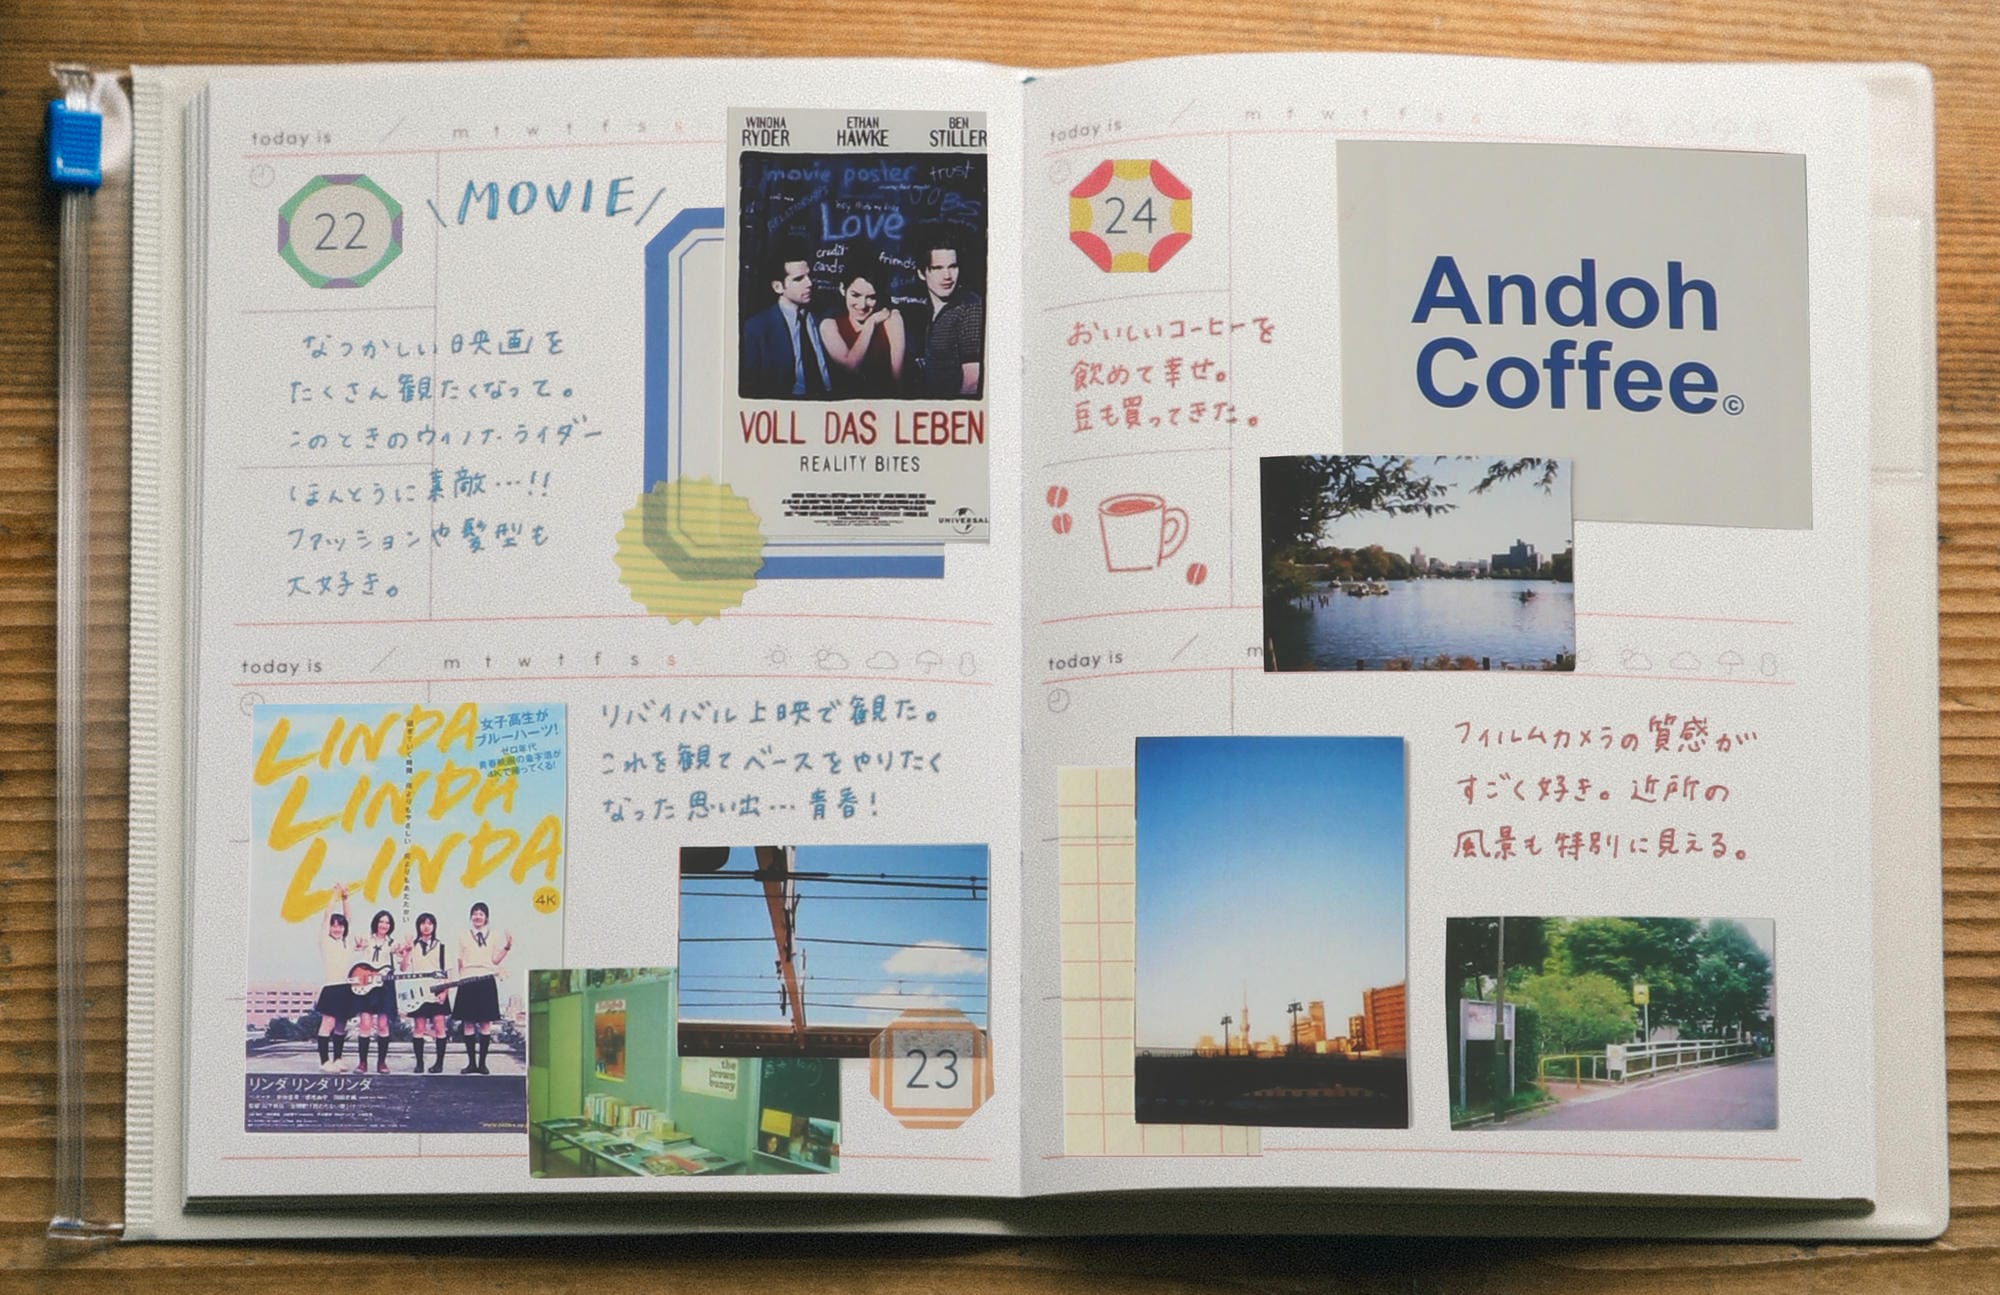 today is / m t w t f s s
22
MOVIE
なつかしい映画を
たくさん観たくなって。
このときのウィノナ・ライダー
ほんとうに素敵…!!
ファッションや髪型も
大好き。
WINONA RYDER
ETHAN HAWKE
BEN STILLER
movie poster
trust
Love
credit cards
friends
romance
VOLL DAS LEBEN
REALITY BITES
UNIVERSAL
today is / m t w t f s s
LINDA
LINDA
LINDA
女子高生が
ブルーハーツ!
ゼロ年代
青春映画の金字塔が
4Kで帰ってくる!
4K
リンダ リンダ リンダ
リバイバル上映で観た。
これを観てベースをやりたく
なった思い出…青春!
the
brown
bunny
23
today is / m t w t f s s
24
おいしいコーヒーを
飲めて幸せ。
豆も買ってきた。
Andoh
Coffee©
today is m
フィルムカメラの質感が
すごく好き。近所の
風景も特別に見える。